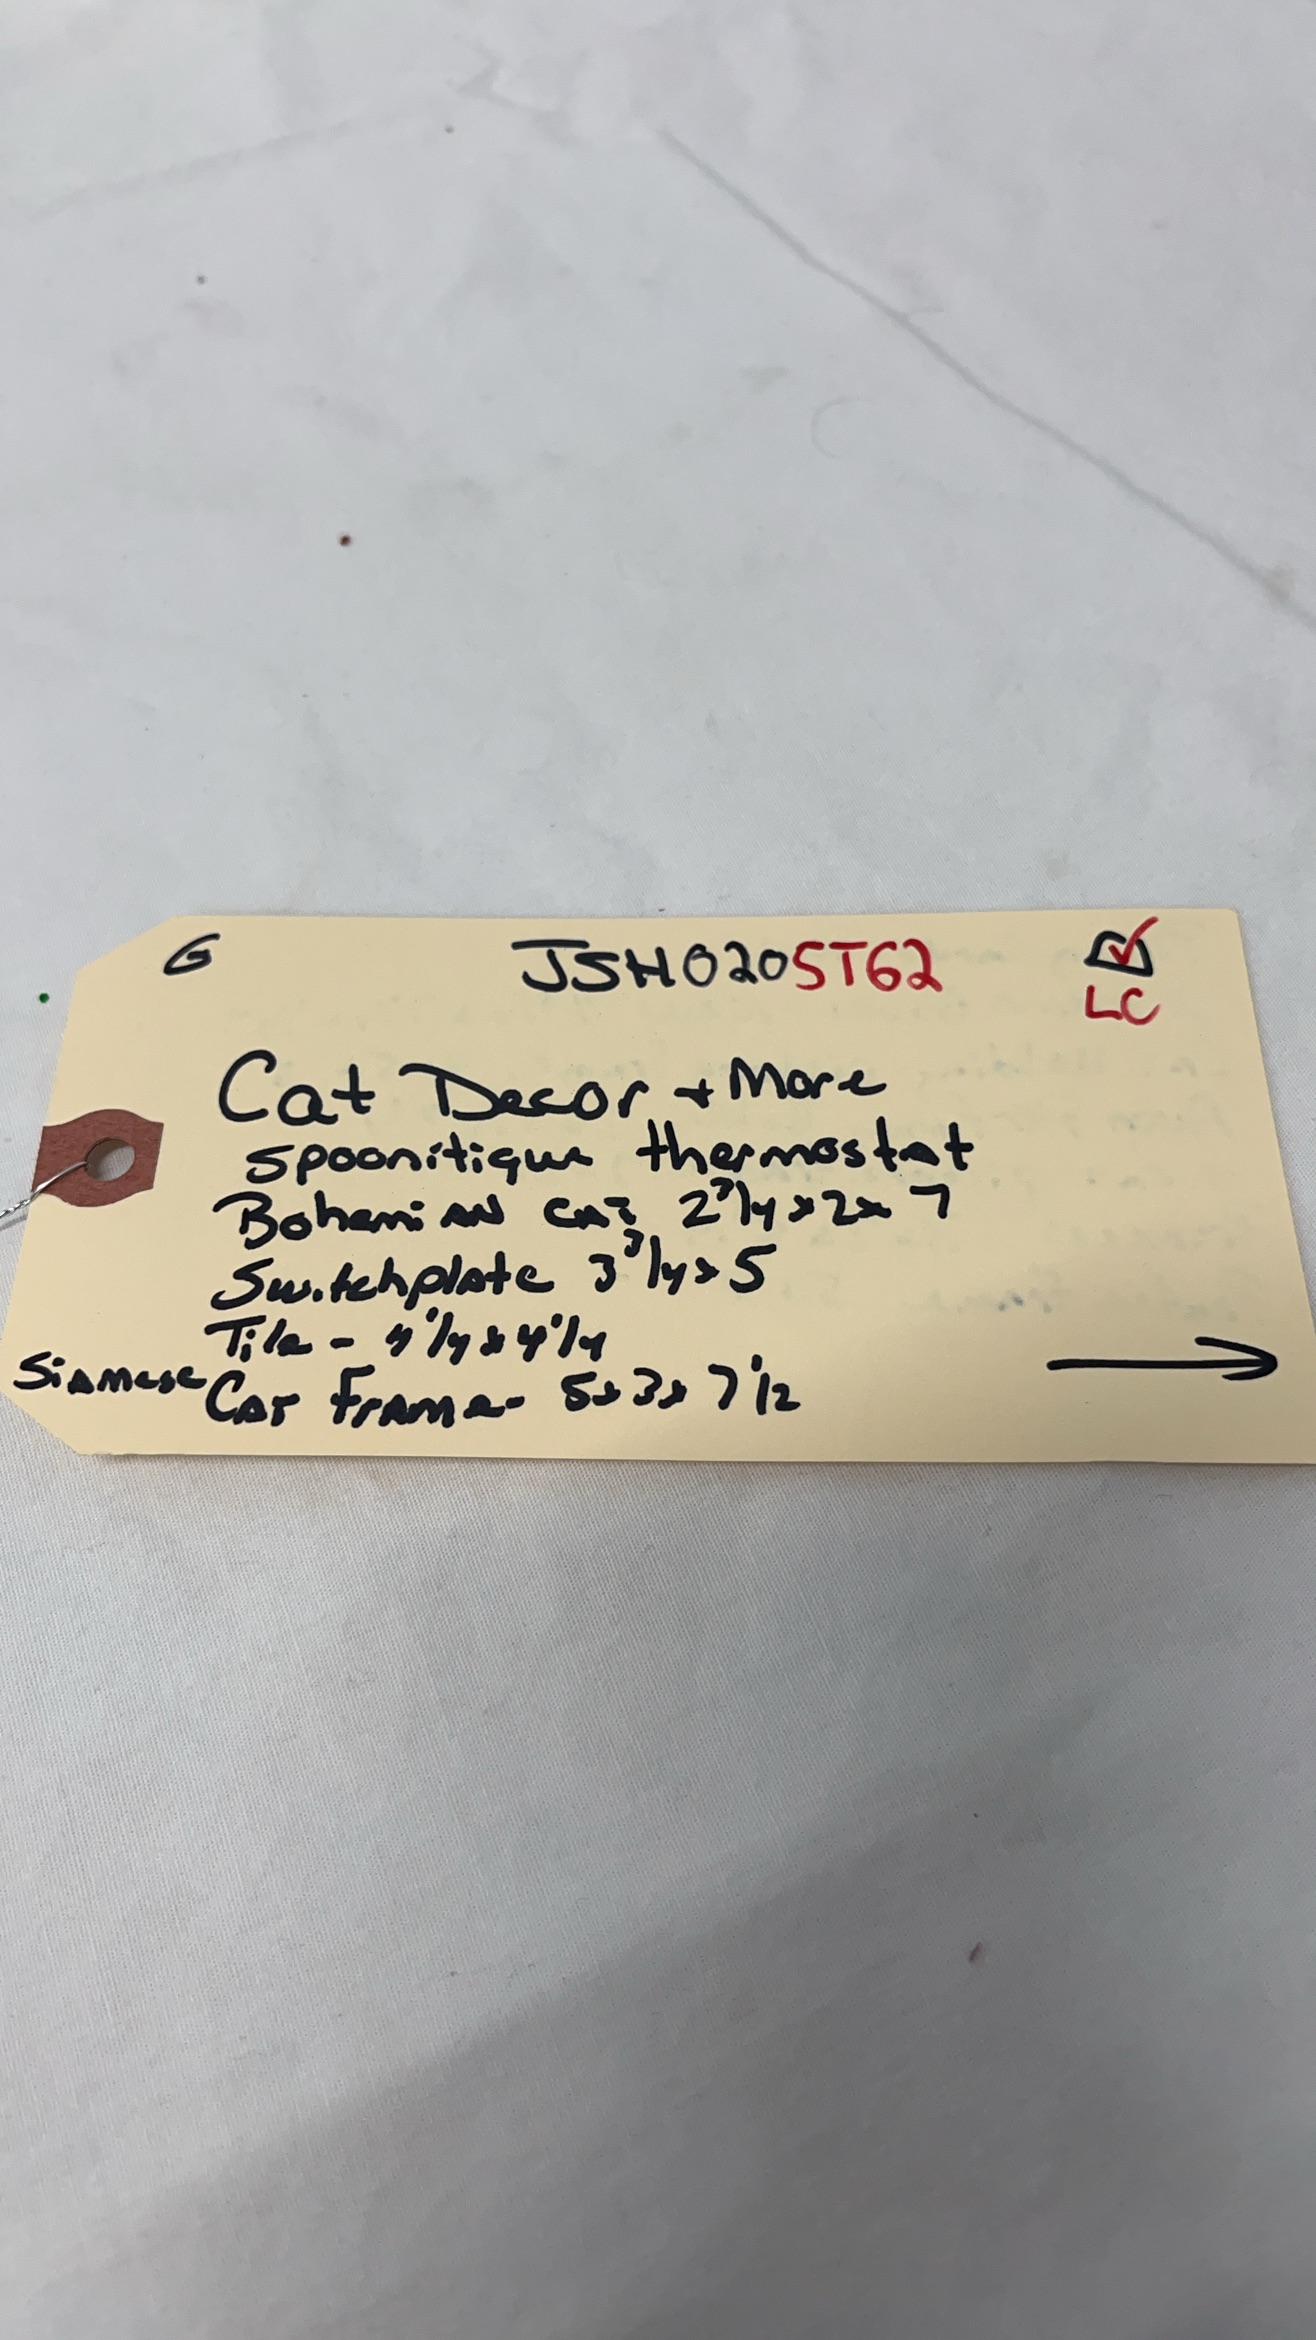 G JSH0205T62
LC
Cat Decor + More
Spoonitique thermostat
Bohemian cat 2 3/4 x 2 x 7
Switchplate 3 3/4 x 5
Tile - 4 1/4 x 4 1/4
Siamese Cat Frame - 5 x 3 x 7 1/2